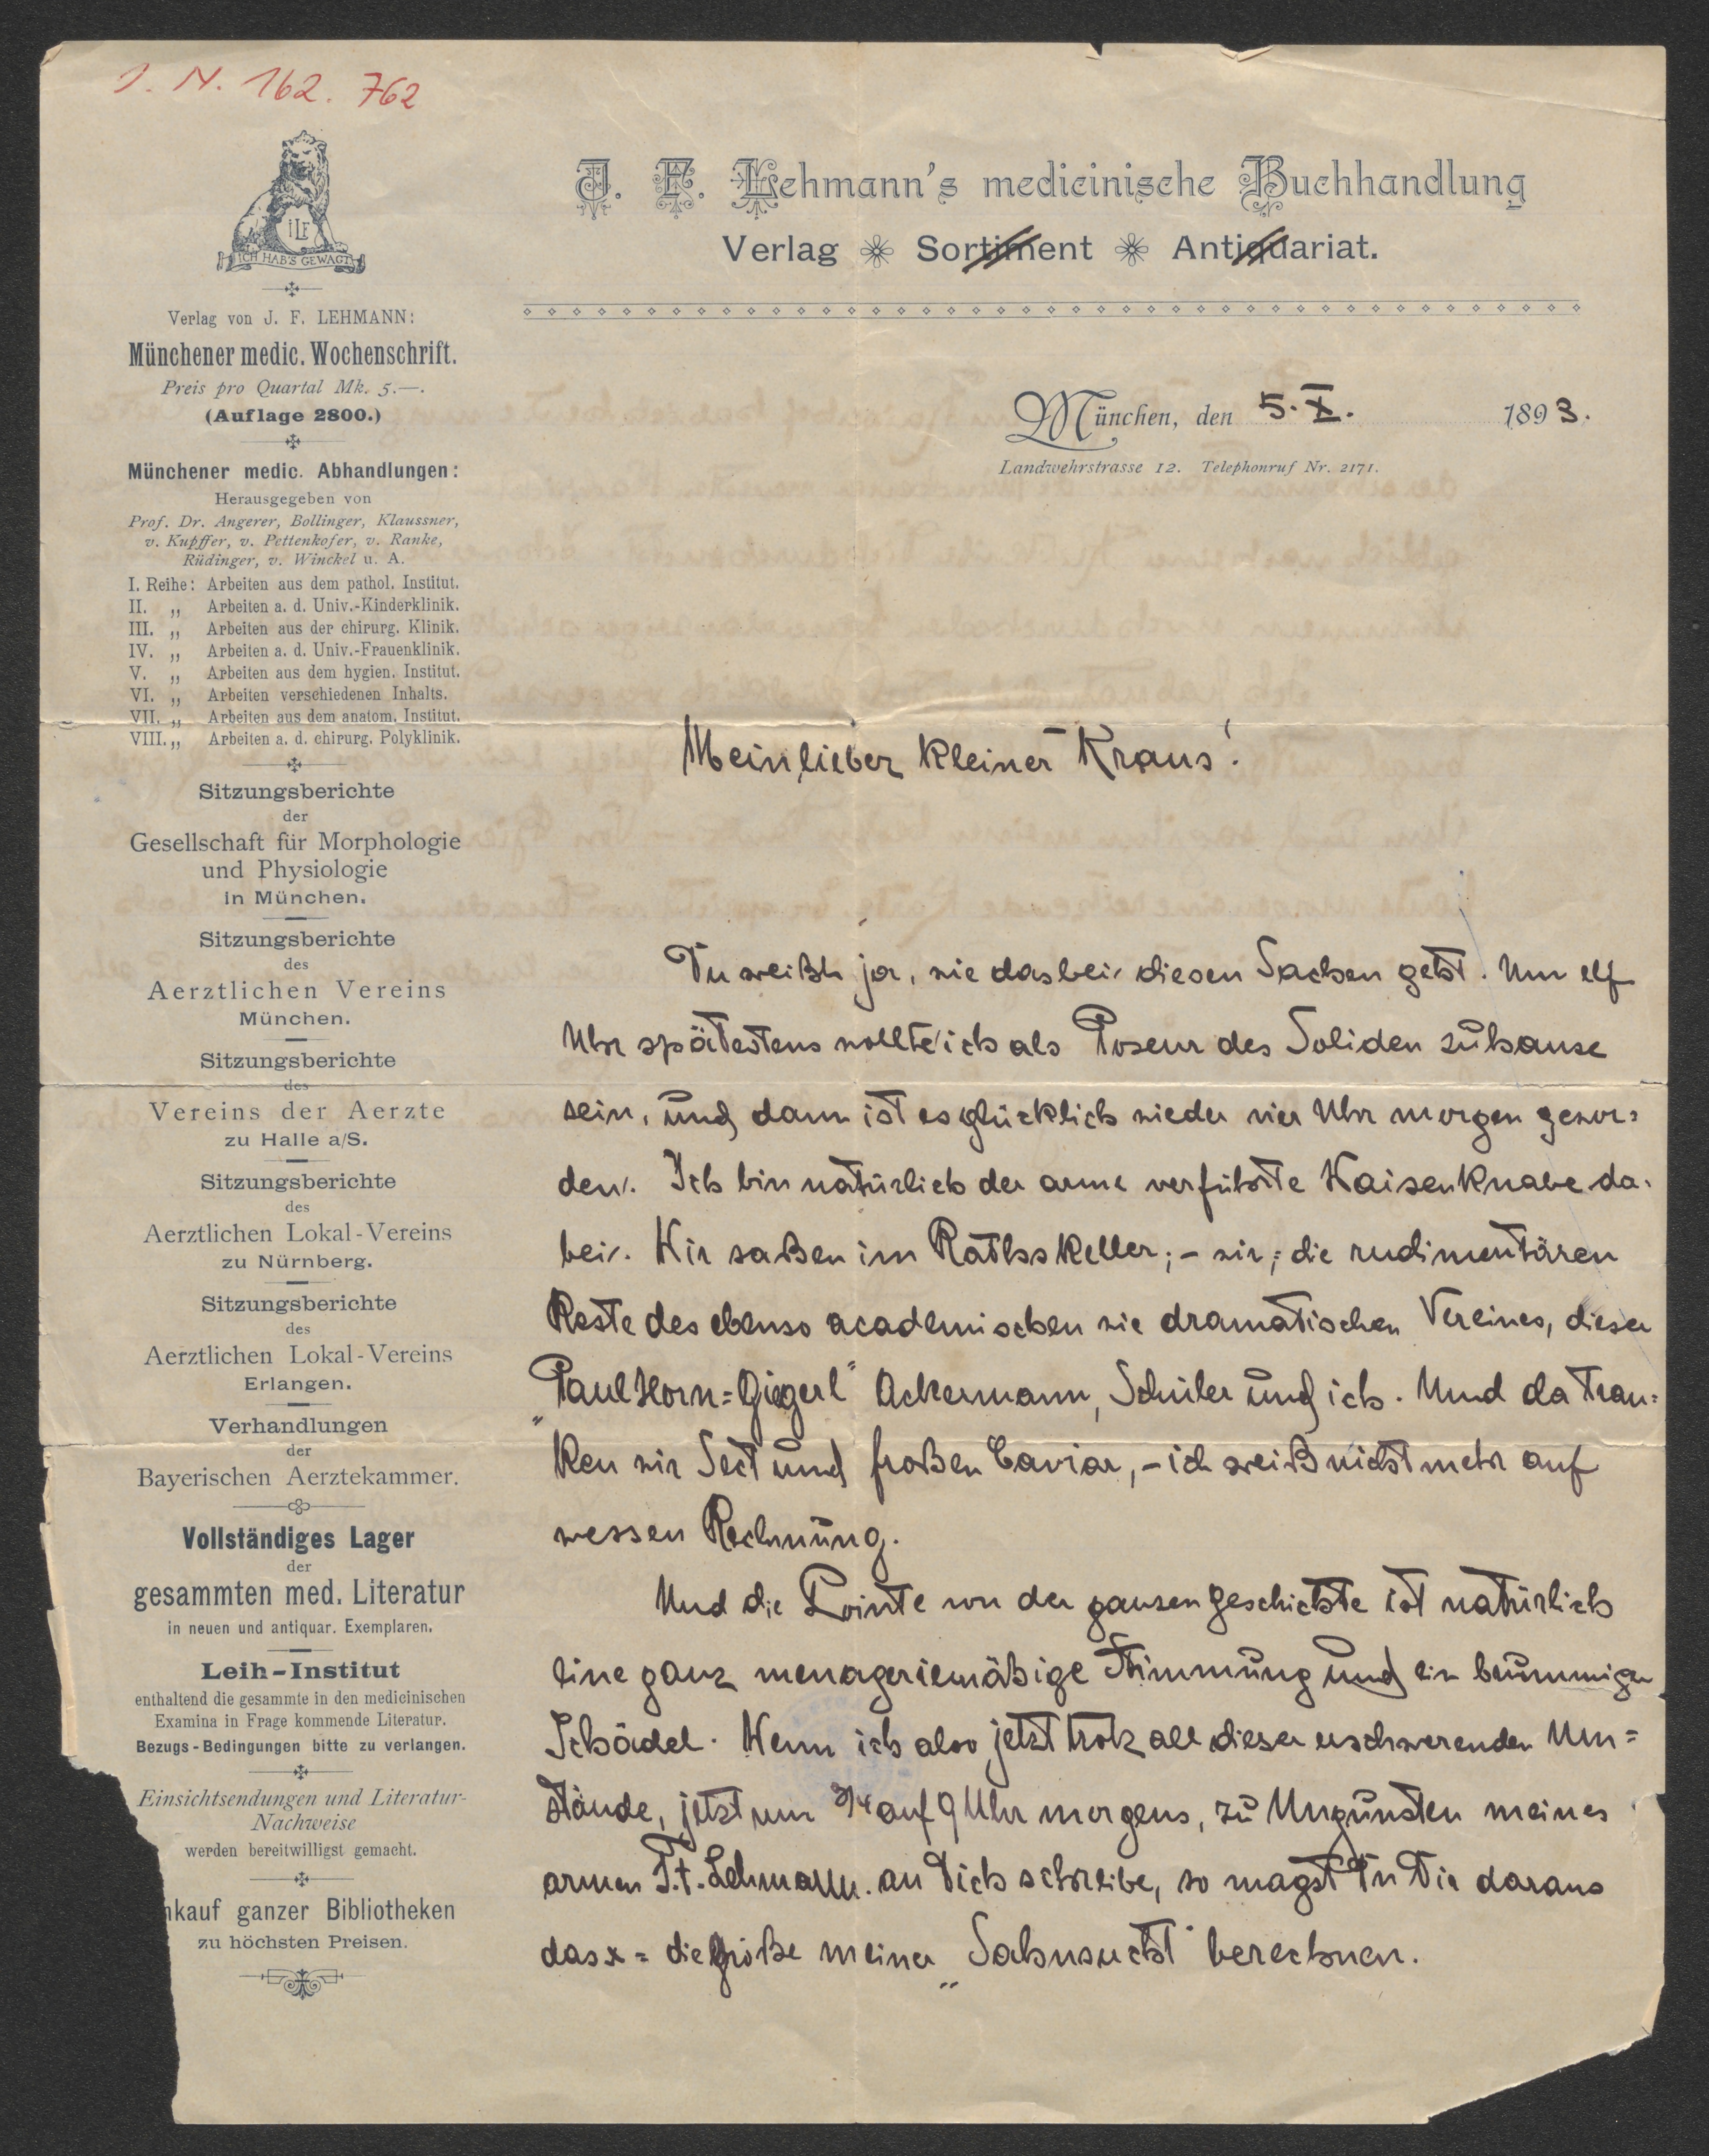 I. N. 162. 762
J. F. Lehmann's medicinische Buchhandlung
Verlag Sortiment Antiquariat.
JLF
ICH HAB'S GEWAGT
Verlag von J. F. LEHMANN:
Münchener medic. Wochenschrift.
Preis pro Quartal Mk. 5.—.
(Auflage 2800.)
Münchener medic. Abhandlungen:
Herausgegeben von
Prof. Dr. Angerer, Bollinger, Klaussner,
v. Kupffer, v. Pettenkofer, v. Ranke,
Rüdinger, v. Winckel u. A.
I. Reihe: Arbeiten aus dem pathol. Institut.
II. „ Arbeiten a. d. Univ.-Kinderklinik.
III. „ Arbeiten aus der chirurg. Klinik.
IV. „ Arbeiten a. d. Univ.-Frauenklinik.
V. „ Arbeiten aus dem hygien. Institut.
VI. „ Arbeiten verschiedenen Inhalts.
VII. „ Arbeiten aus dem anatom. Institut.
VIII. „ Arbeiten a. d. chirurg. Polyklinik.
Sitzungsberichte
der
Gesellschaft für Morphologie
und Physiologie
in München.
Sitzungsberichte
des
Aerztlichen Vereins
München.
Sitzungsberichte
des
Vereins der Aerzte
zu Halle a/S.
Sitzungsberichte
des
Aerztlichen Lokal-Vereins
zu Nürnberg.
Sitzungsberichte
des
Aerztlichen Lokal-Vereins
Erlangen.
Verhandlungen
der
Bayerischen Aerztekammer.
Vollständiges Lager
der
gesammten med. Literatur
in neuen und antiquar. Exemplaren.
Leih-Institut
enthaltend die gesammte in den medicinischen
Examina in Frage kommende Literatur.
Bezugs-Bedingungen bitte zu verlangen.
Einsichtsendungen und Literatur-
Nachweise
werden bereitwilligst gemacht.
nkauf ganzer Bibliotheken
zu höchsten Preisen.
München, den 5. X. 1893.
Landwehrstrasse 12. Telephonruf Nr. 2171.
Mein lieber kleiner Kraus!
Du weißt ja, wie das bei diesen Sachen geht. Um elf
Uhr spätestens wollte ich als Poseur des Soliden zuhause
sein, und dann ist es glücklich wieder vier Uhr morgen gewor=
den. Ich bin natürlich der arme verführte Waisenknabe da-
bei. Wir saßen im Rathskeller; – wir; die rudimentären
Reste des ebenso academischen wie dramatischen Vereines, dieser
„Paul Horn=Gigerl" Ackermann, Schuler und ich. Und da tran=
ken wir Sect und fraßen Caviar, – ich weiß nicht mehr auf
wessen Rechnung.
Und die Pointe von der ganzen Geschichte ist natürlich
eine ganz menageriemäßige Stimmung und ein brummiger
Schädel. Wenn ich also jetzt trotz all dieser erschwerenden Um=
stände, jetzt um 3/4 auf 9 Uhr morgens, zu Ungunsten meines
armen Lehmann. an Dich schreibe, so magst Du Dir daraus
das x = die Größe meiner „Sahnsucht" berechnen.